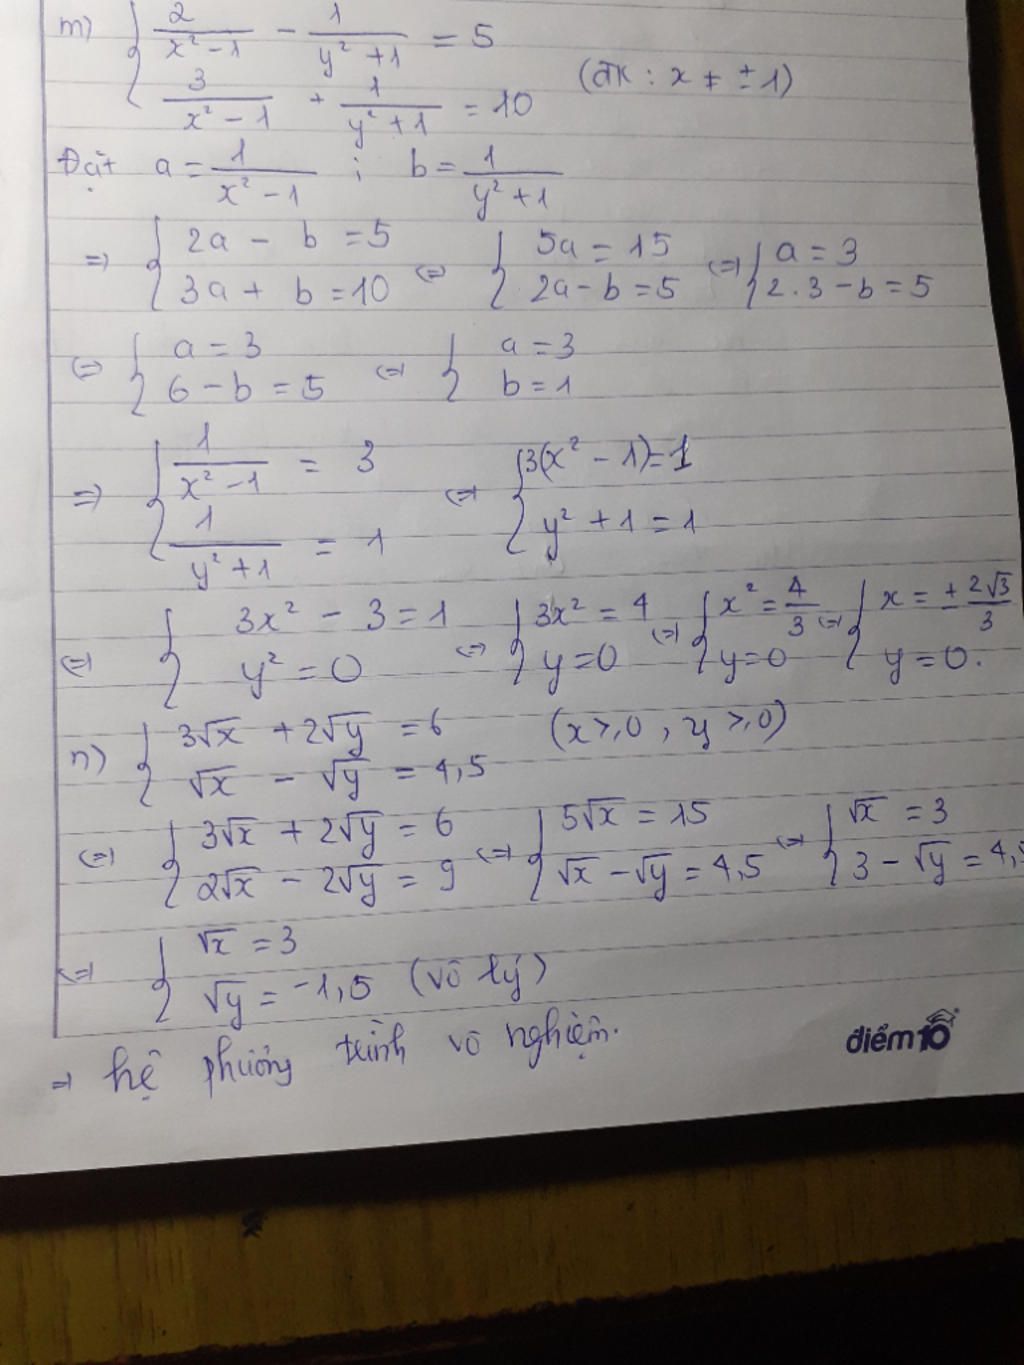 m) { 2/(x² - 1) - 1/(y² + 1) = 5
3/(x² - 1) + 1/(y² + 1) = 10 (ĐK : x ≠ ± 1)
Đặt a = 1/(x² - 1) ; b = 1/(y² + 1)
=> { 2a - b = 5 ; 3a + b = 10 <=> { 5a = 15 ; 2a - b = 5 <=> { a = 3 ; 2.3 - b = 5
<=> { a = 3 ; 6 - b = 5 <=> { a = 3 ; b = 1
=> { 1/(x² - 1) = 3 ; 1/(y² + 1) = 1 <=> { 3(x² - 1) = 1 ; y² + 1 = 1
<=> { 3x² - 3 = 1 ; y² = 0 <=> { 3x² = 4 ; y = 0 <=> { x² = 4/3 ; y = 0 <=> { x = ± 2√3/3 ; y = 0.
n) { 3√x + 2√y = 6 ; √x - √y = 4,5 (x ≥ 0, y ≥ 0)
<=> { 3√x + 2√y = 6 ; 2√x - 2√y = 9 <=> { 5√x = 15 ; √x - √y = 4,5 <=> { √x = 3 ; 3 - √y = 4,5
<=> { √x = 3 ; √y = -1,5 (vô lý)
=> hệ phương trình vô nghiệm.
điểm10